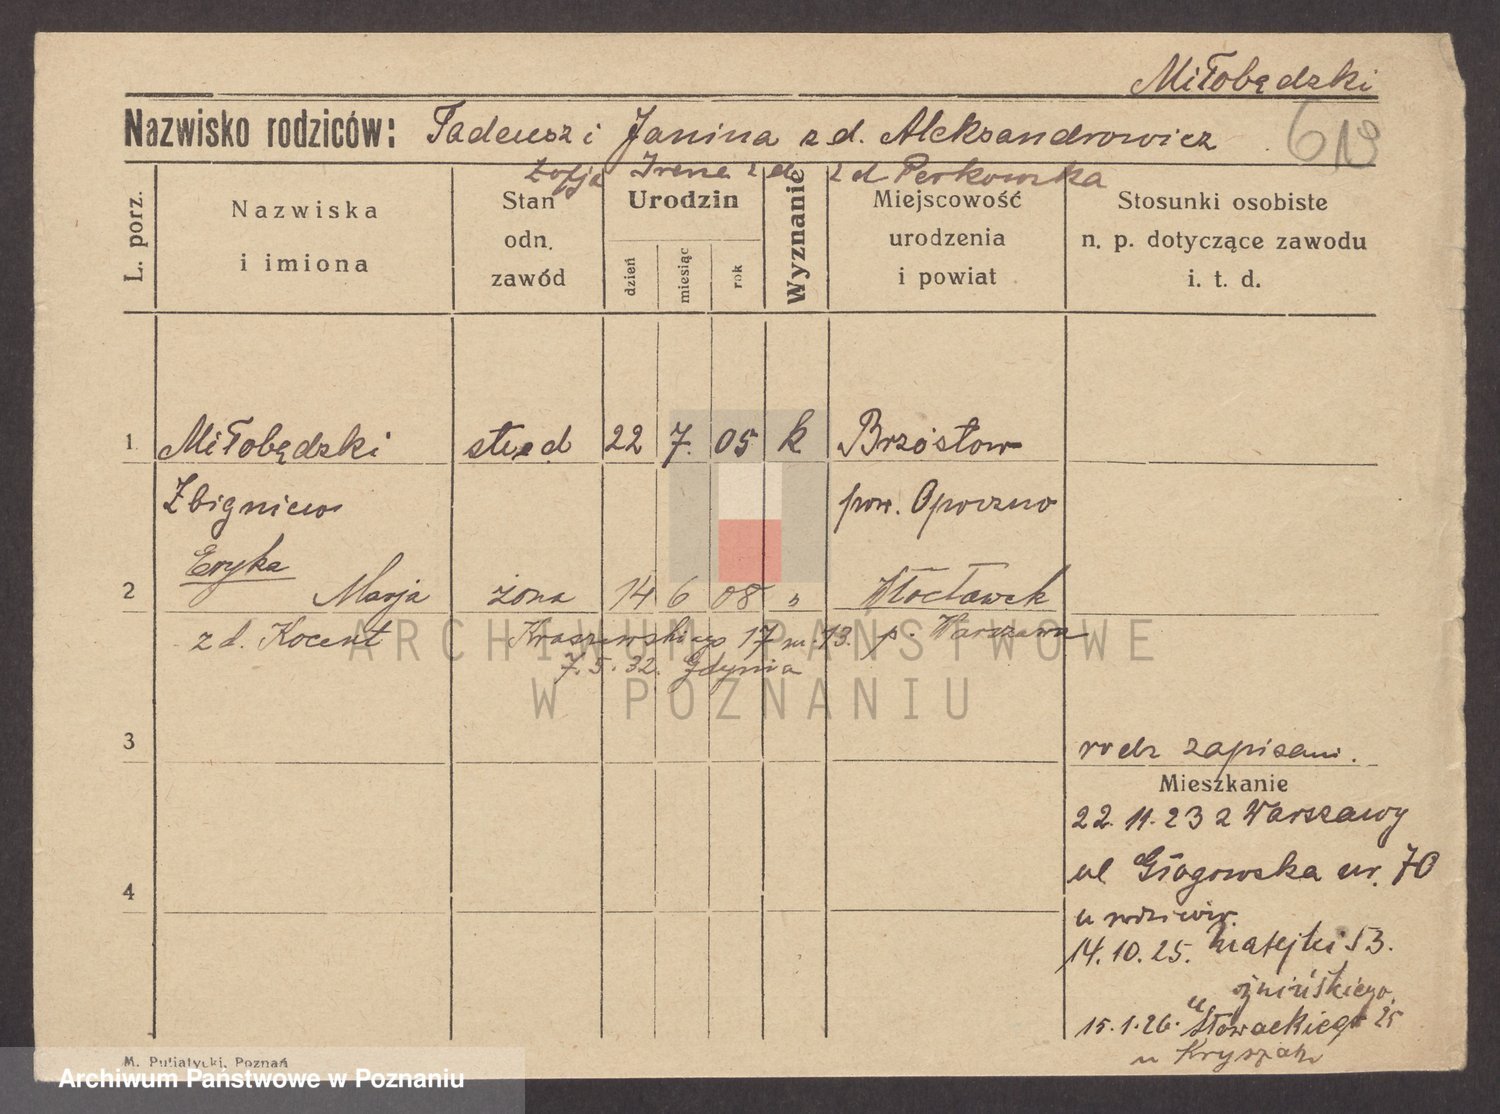 Miłobędzki
Nazwisko rodziców: Tadeusz i Janina z d. Aleksandrowicz
619
Zofja Irena z d. z d Perkowska
L. porz.
Nazwiska
i imiona
Stan
odn.
zawód
Urodzin
dzień
miesiąc
rok
Wyznanie
Miejscowość
urodzenia
i powiat
Stosunki osobiste
n. p. dotyczące zawodu
i. t. d.
1 Miłobędzki stud 22 7. 05 k Brzóstow
Zbigniew pow. Opoczno
Eryka
2 Marja żona 14 6 08 " Włocławek
z d. Kocent Kraszewskiego 17 m. 13. p. Warszawa
7.5.32. Gdynia
ARCHIWUM PAŃSTWOWE
W POZNANIU
3
rodz zapisani.
Mieszkanie
22. 11. 23 z Warszawy
ul Głogowska nr. 70
4
u rodziców.
14. 10. 25. Matejki 53.
u
15. 1. 26. Słowackiego 25
u
M. Putiatycki, Poznań
Archiwum Państwowe w Poznaniu